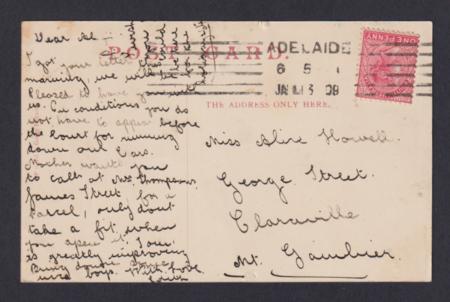 Dear Al —
POST CARD.
I got your letter this
morning, we will be
pleased to have you with
us. On conditions you do
not have to appear before
the Court for running
down our Cars.
Mother wants you
to call at Mrs. Thompson's,
James Street for a
parcel, only don't
take a fit when
you open it. Your
is greatly improving
With love
THE ADDRESS ONLY HERE.
ADELAIDE
6 5
09
ONE PENNY
Miss Alice Howell.
George Street.
Claraville
Mt. Gambier.